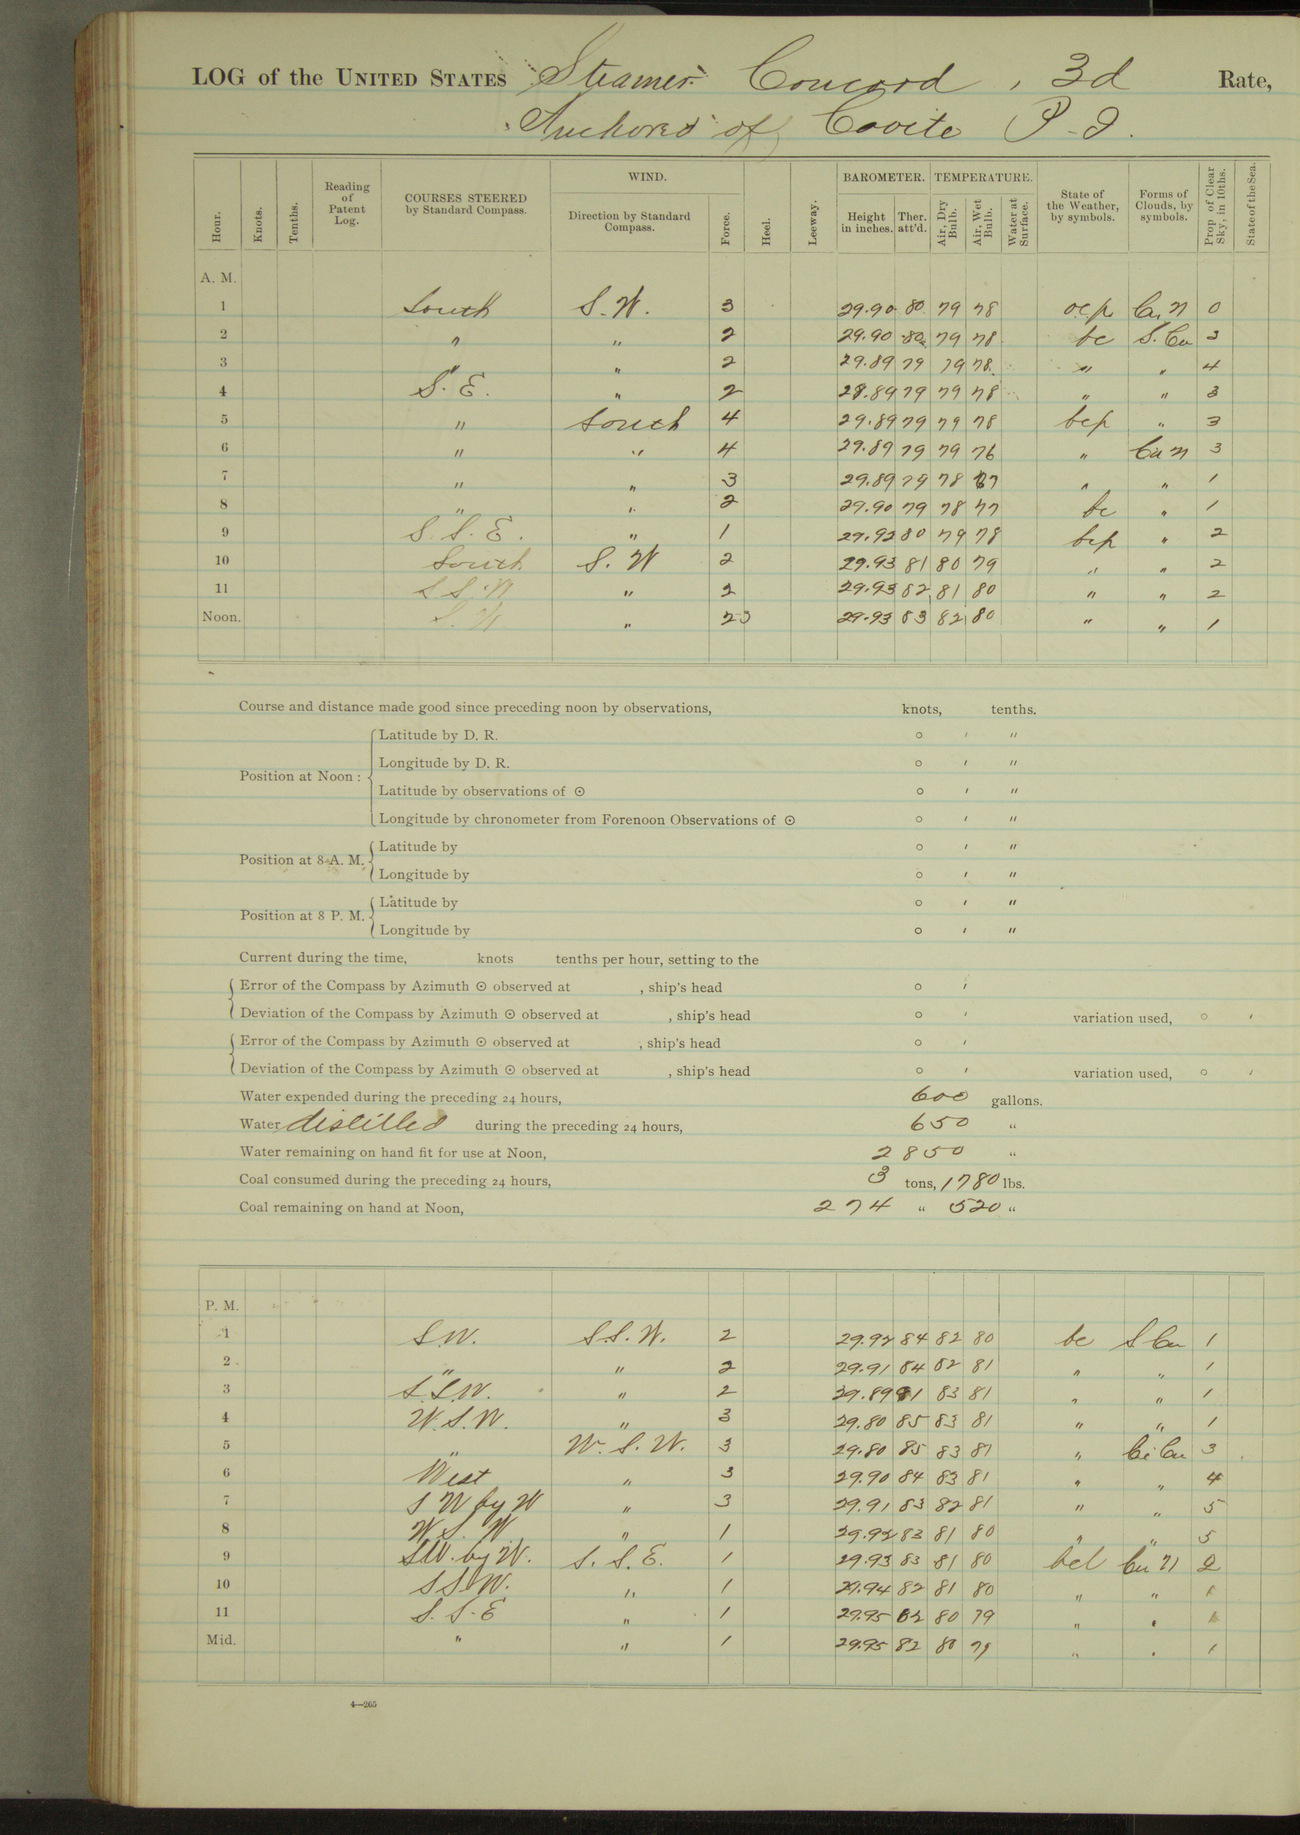 LOG of the UNITED STATES Steamer Concord, 3d Rate,
Anchored off Cavite P.I.
Hour. Knots. Tenths. Reading of Patent Log. COURSES STEERED by Standard Compass. WIND. Direction by Standard Compass. Force. Heel. Leeway. BAROMETER. Height in inches. Ther. att'd. TEMPERATURE. Air, Dry Bulb. Air, Wet Bulb. Water at Surface. State of the Weather, by symbols. Forms of Clouds, by symbols. Prop of Clear Sky, in 10ths. State of the Sea.
A. M.
1 South S.W. 3 29.90 80 79 78 ocp Cu. N 0
2 " " 2 29.90 80 79 78 bc S.Cu 3
3 " " 2 29.89 79 79 78 " " 4
4 S.E. " 2 29.89 79 79 78 " " 3
5 " South 4 29.89 79 79 78 bcp " 3
6 " " 4 29.89 79 79 76 " Cu N 3
7 " " 3 29.89 79 78 77 " " 1
8 " " 2 29.90 79 78 77 bc " 1
9 S.S.E. " 1 29.92 80 79 78 bcp " 2
10 South S.W 2 29.93 81 80 79 " " 2
11 S S.W " 2 29.93 82 81 80 " " 2
Noon. S.W " 2-3 29.93 83 82 80 " " 1
Course and distance made good since preceding noon by observations, knots, tenths.
Position at Noon :
Latitude by D. R. ° ′ ″
Longitude by D. R. ° ′ ″
Latitude by observations of ☉ ° ′ ″
Longitude by chronometer from Forenoon Observations of ☉ ° ′ ″
Position at 8 A. M.
Latitude by ° ′ ″
Longitude by ° ′ ″
Position at 8 P. M.
Latitude by ° ′ ″
Longitude by ° ′ ″
Current during the time, knots tenths per hour, setting to the
Error of the Compass by Azimuth ☉ observed at , ship's head ° ′
Deviation of the Compass by Azimuth ☉ observed at , ship's head ° ′ variation used, ° ′
Error of the Compass by Azimuth ☉ observed at , ship's head ° ′
Deviation of the Compass by Azimuth ☉ observed at , ship's head ° ′ variation used, ° ′
Water expended during the preceding 24 hours, 600 gallons.
Water distilled during the preceding 24 hours, 650 "
Water remaining on hand fit for use at Noon, 2850 "
Coal consumed during the preceding 24 hours, 3 tons, 1780 lbs.
Coal remaining on hand at Noon, 274 " 520 "
P. M.
1 S.W. S.S.W. 2 29.92 84 82 80 bc S.Cu 1
2 " " 2 29.91 84 82 81 " " 1
3 S.S.W. " 2 29.89 81 83 81 " " 1
4 W.S.W. " 3 29.80 85 83 81 " " 1
5 " W.S.W. 3 29.80 85 83 81 " Ci Cu 3
6 West " 3 29.90 84 83 81 " " 4
7 S W by W " 3 29.91 83 82 81 " " 5
8 W S. W " 1 29.92 83 81 80 " " 5
9 SW. by W. S.S.E. 1 29.93 83 81 80 bcl Cu N 2
10 S S.W. " 1 29.94 82 81 80 " " 1
11 S.S.E " 1 29.95 82 80 79 " " 1
Mid. " " 1 29.95 82 80 79 " " 1
4—265